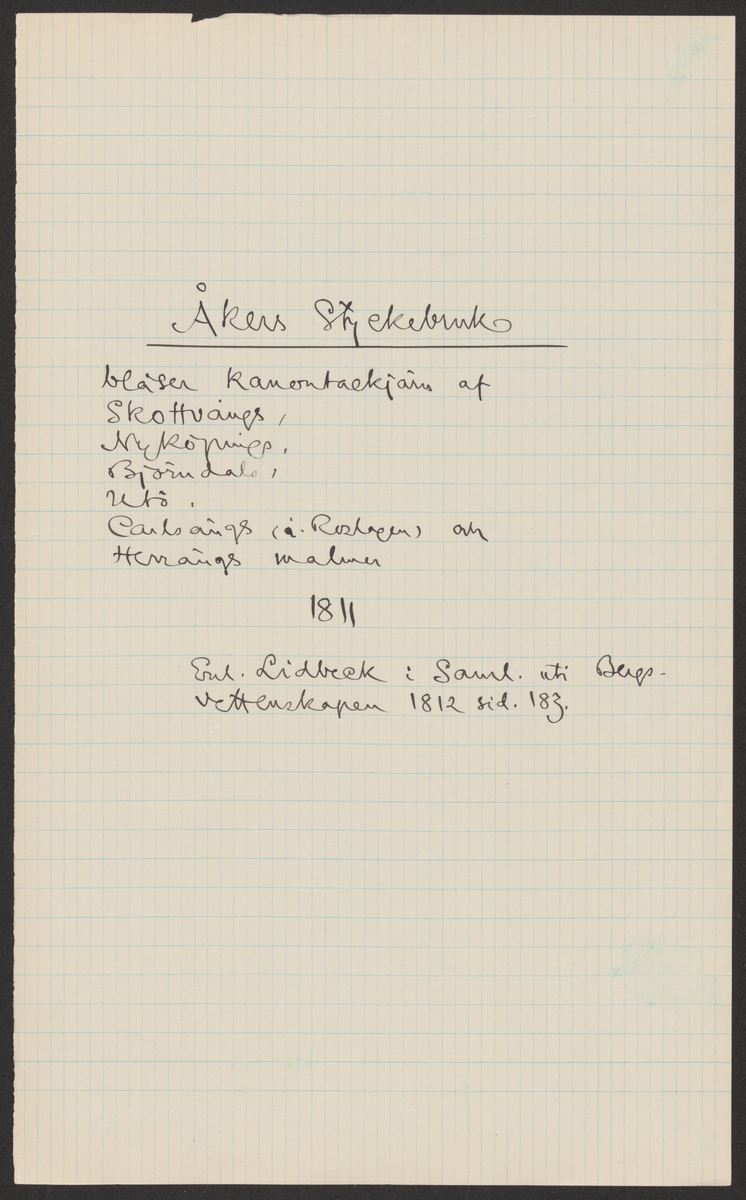 Åkers Styckebruk
blåser kanontackjärn af
Skottvångs,
Nyköpings,
Björndals,
Utö,
Carlsängs (i Roslagen) och
Herrängs malmer
1811
Enl. Lidbeck i Saml. uti Bergs-
vettenskapen 1812 sid. 183.